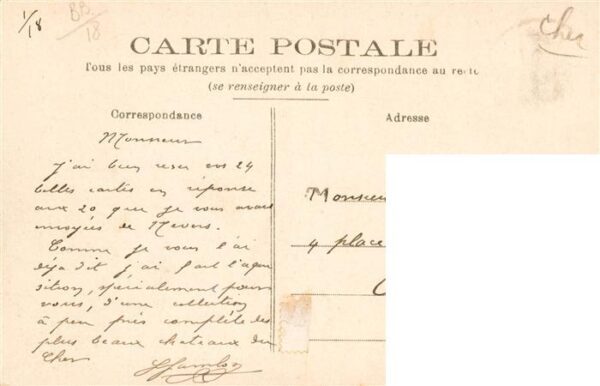 1/18
BB
18
Cher
CARTE POSTALE
Tous les pays étrangers n'acceptent pas la correspondance au recto
(se renseigner à la poste)
Correspondance
Adresse
Monsieur
J'ai bien reçu vos 24
belles cartes en réponse
aux 20 que je vous avais
envoyées de Nevers.
Comme je vous l'ai
déja dit j'ai fait l'aqui
sition, spécialement pour
vous, d'une collection
à peu près complète des
plus beaux chateaux du
Cher
Monsieur
4 place